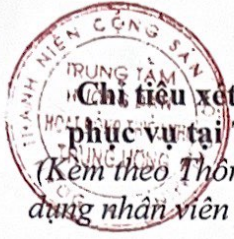 THANH NIÊN CỘNG SẢN
TRUNG TÂM
Chỉ tiêu xét
phục vụ tại
(Kèm theo Thôn
dụng nhân viên